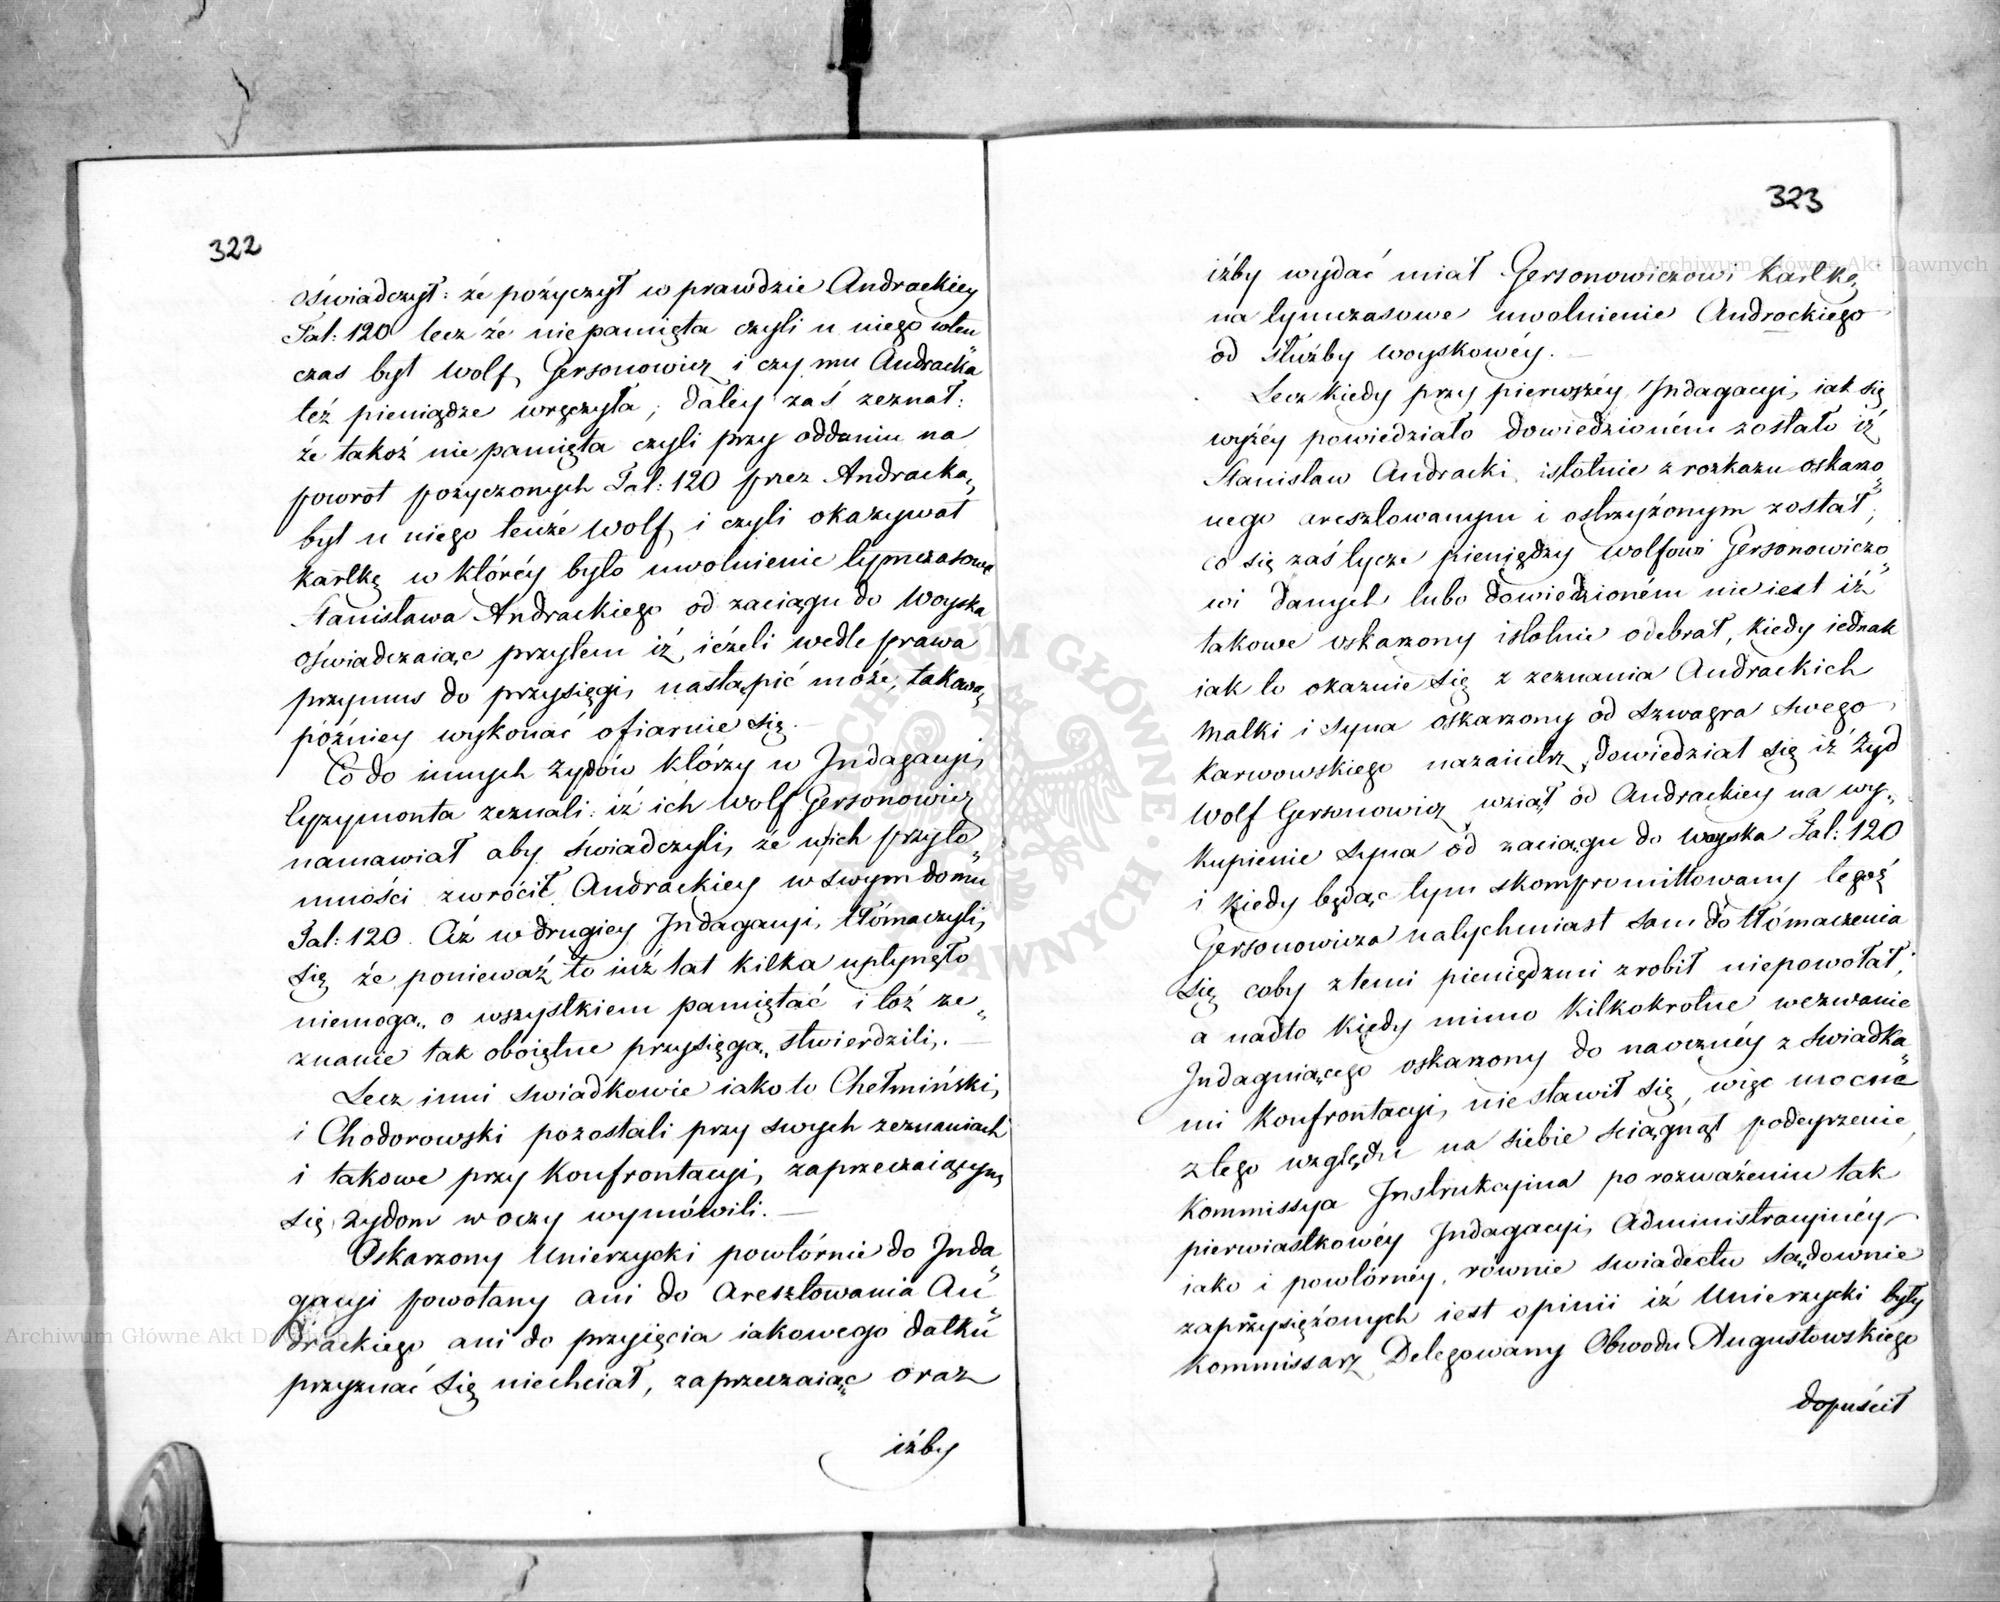 322
oświadczył: że pożyczył w prawdzie Andrackiey
Tal: 120 lecz że nie pamięta czyli u niego wten„
czas był Wolf Gersonowicz i czy mu Andracka
też pieniądze wręczyła; daley zaś zeznał:
że takoż nie pamięta czyli przy oddaniu na
powrot pożyczonych Tal: 120 przez Andracką,
był u niego tenże Wolf, i czyli okazywał
kartkę w któréy było uwolnienie tymczasowe
Stanisława Andrackiego od zaciągu do Woyska
oświadczaiąc przytem iż, ieżeli wedle prawa
przymus do przysięgi nastąpić może, takową,
późniey wykonać ofiaruie się. —
Co do innych Żydów którzy w Indagacyi
Czyzymonta zeznali: iż ich Wolf Gersonowicz
namawiał aby świadczyli, że w ich przyto„
mności zwrócił Andrackiey w swym domu
Tal: 120. Ciż w drugiey Indagacyi, tłómaczyli,
się że ponieważ to iuż lat kilka upłynęło
niemogą, o wszystkiem pamiętać i toż ze„
znanie tak oboiętne przysięgą, stwierdzili,. —
Lecz inni swiadkowie iako to Chełmiński,
i Chodorowski pozostali przy swych zeznaniach
i takowe przy Konfrontacyi, zaprzeczaiącym
się Żydom w oczy wymówili. —
Oskarzony Unierzycki powtórnie do Inda„
gacyi powołany ani do Aresztowania An„
drackiego ani do przyięcia iakowego datku
przyznać się niechciał, zaprzeczaiąc oraz
iżby
323
iżby wydać miał Gersonowiczowi Kartkę,
na tymczasowe uwolnienie Andrackiego
od służby woyskowéy. —
Lecz kiedy przy pierwszéy Indagacyi, iak się
wyżéy powiedziało dowiedzioném zostało iż
Stanisław Andracki istotnie z rozkazu oskarzo„
nego aresztowanym i ostrzyżonym został;
co się zaś tycze pieniędzy Wolfowi Gersonowiczo„
wi danych lubo dowiedzioném nie iest iż
takowe oskarzony istotnie odebrał, kiedy iednak
iak to okazuie się z zeznania Andrackich
Matki i Syna oskarzony od Szwagra swego
Karwowskiego nazaiutrz dowiedział się iż Żyd
Wolf Gersonowicz wziął od Andrackiey na wy„
kupienie Syna od zaciągu do Woyska Tal: 120
i kiedy będąc tym skompromittowany tegoż
Gersonowicza natychmiast sam do tłómaczenia
się coby z temi pieniędzmi zrobił niepowołał;
a nadto kiedy mimo kilkokrotne wezwanie
Indaguiącego oskarzony do naoczney z swiadka„
mi Konfrontacyi, nie stawił się, więc mocne
z tego względu na siebie sciągnął podeyrzenie,
Kommissya Instrukcyina po rozważeniu tak
pierwiastkowéy Indagacyi Administracyinéy
iako i powtórnéy, równie swiadectw sądownie
zaprzysiężonych iest opinii iż Unierzycki były
Kommissarz Delegowany Obwodu Augustowskiego
dopuścił
Archiwum Główne Akt Dawnych
Archiwum Główne Akt Dawnych
ARCHIWUM GŁÓWNE AKT DAWNYCH